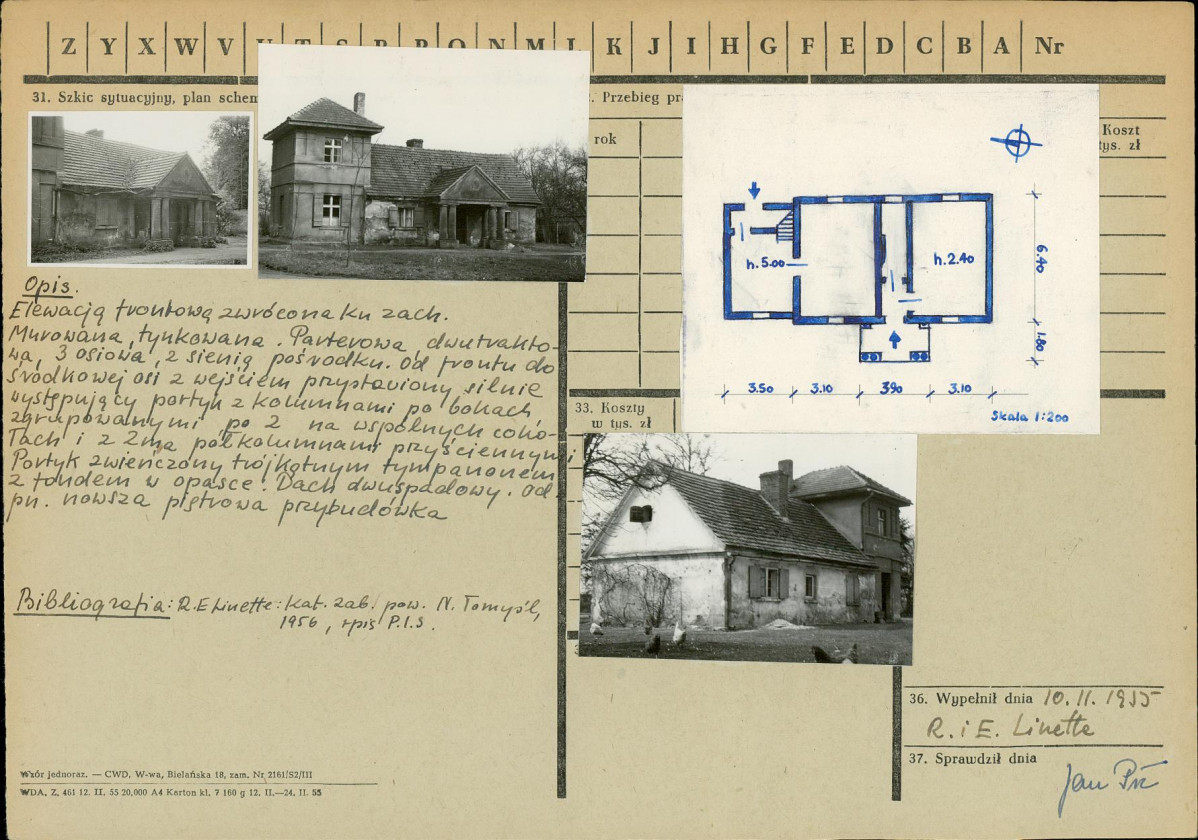 Z Y X W V U T S R P O N M L K J I H G F E D C B A Nr
31. Szkic sytuacyjny, plan schem
Przebieg pr
rok
Koszt
tys. zł
h. 5.00
h. 2.40
6.40
1.80
3.50 3.10 3.90 3.10
Skala 1:200
Opis.
Elewacją frontową zwrócona ku zach.
Murowana, tynkowana. Parterowa, dwutrakto-
wa, 3 osiowa, z sienią pośrodku. Od frontu do
środkowej osi z wejściem przystawiony silnie
występujący portyk z kolumnami po bokach
zgrupowanymi po 2 na wspólnych coko-
łach i z 2ma półkolumnami przyściennymi
Portyk zwieńczony trójkątnym tympanonem
z tondem w opasce. Dach dwuspadowy. Od
pn. nowsza piętrowa przybudówka
33. Koszty
w tys. zł
Bibliografia: R.E Linette: Kat. zab. pow. N. Tomyśl,
1956, rpis P.I.S.
36. Wypełnił dnia 10. 11. 1955
R. i E. Linette
37. Sprawdził dnia
Jan
Wzór jednoraz. — CWD, W-wa, Bielańska 18, zam. Nr 2161/S2/III
WDA. Z. 461 12. II. 55 20,000 A4 Karton kl. 7 160 g 12. II.—24. II. 55